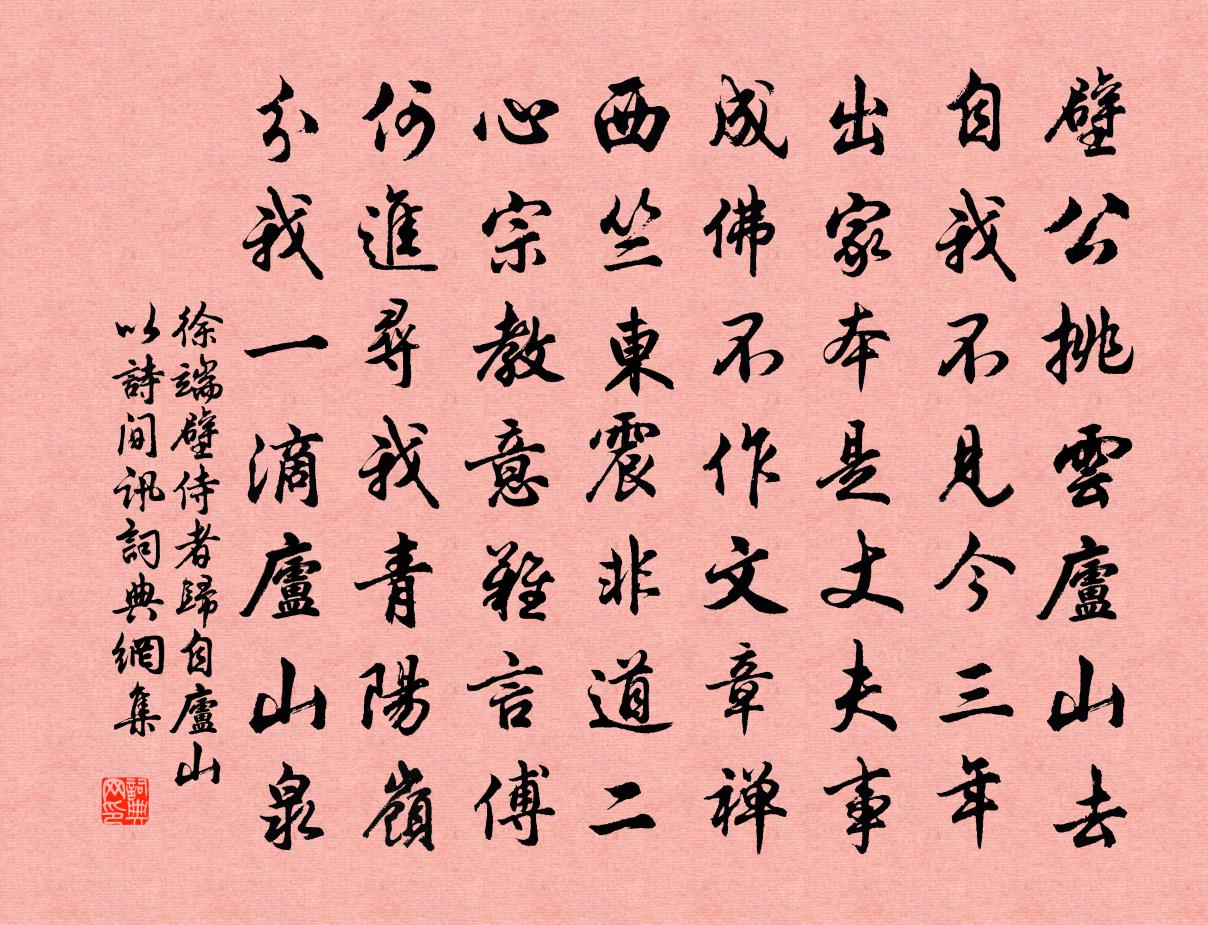 璧公挑雲廬山去
自我不見今三年
出家本是丈夫事
成佛不作文章禅
西竺東震非道二
心宗教意難言傅
何進尋我青陽嶺
分我一滴廬山泉
徐端璧侍者歸自廬山
以詩间讯詞典網集
詞典
网印